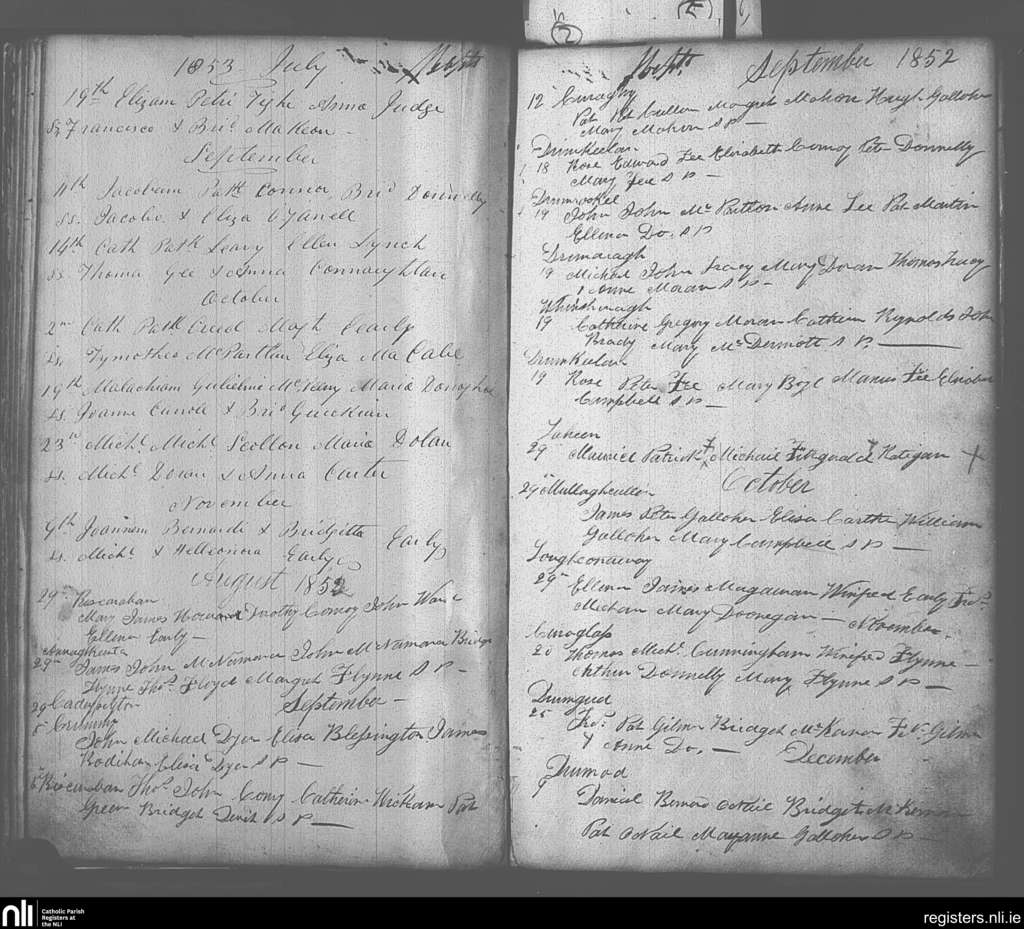 1853 July Baptm
19th Elizam Petri Tighe Anna Judge
Ss Francisco & Brid. MaKeon -
September
4th Jacobum Patk Connor Brid Donnelly
Ss. Jacobo & Eliza
14th Cath Patk Leavy Ellen Lynch
Ss. Thoma Gee & Anna Connaughtan
October
2nd Cath Patk Creed Margt Cearly
Ss. Tymotheo McParthin Eliza MaCabe
19th Malachiam Gulielmi Maria Donoghoe
Ss. Joanne Carroll & Brid Guckian
23rd Michl. Michl. Scollon Maria Dolan
Ss. Michl. Doran & Anna Carter
November
9th Joannem Bernardi & Bridgitta Early
Ss. Michl. & Helleonora Early
August 1852
29th
Mary James Dorothy Conroy John Ward
Ellenn Early -
Annaghkenta
29th James John McNamara John McNamara Bridget
Flynne Thos. Floyd Margret Flynne S P -
September -
29
5
John Michael Dyer Elisa Blessington James
Bodihan Dyer S P -
5 Thos. John Cony Catherin Wickham Pat
Green Bridget S P -
Baptm. September 1852
12 Curaghy
Pat Pat Cullen Magret Mahon Hugh Galloher
Mary Mahon S P -
Drumkeelan
18 Rose Edward Fee Elisabeth Conroy Peter Donnelly
Mary Fee S P -
Drumroskel
19 John John Mc Partton Anne Lee Pat Martin
Ellenn Do. S P
Drumaragh
19 Michael John Tracy Mary Doran Thomas Tracy
& Anne Moran S P -
19 Catherine Gregory Moran Cathern Reynolds John
Brady Mary Mc Dermott S P.
Drumkeelan
19 Rose Peter Fee Mary Boyl Manus Fee Elisabe
Campbell S P -
Laheen
29 Maurice Patrick Michael Fitzgerald Ratigan +
October
29 Mullaghcullin
James Peter Galloher Elisa Carthe William
Galloher Mary Campbell S P -
Loughconaway
29 Ellenn James Magauran Winifred Early
Michan Mary Doonegan - November.
Curoglass
20 Thomas Michl. Cunningham Winifred Flynne -
Arthur Donnelly Mary Flynne S P -
Drumgud
25 Pat Gilmor Bridget McKernan Gilmor
& Anne Do. - December
Drumod
9
Daniel Bernard ONeil Bridget McKernan
Pat ONeil Maryanne Galloher S P -
nli
Catholic Parish
Registers at
the NLI
registers.nli.ie